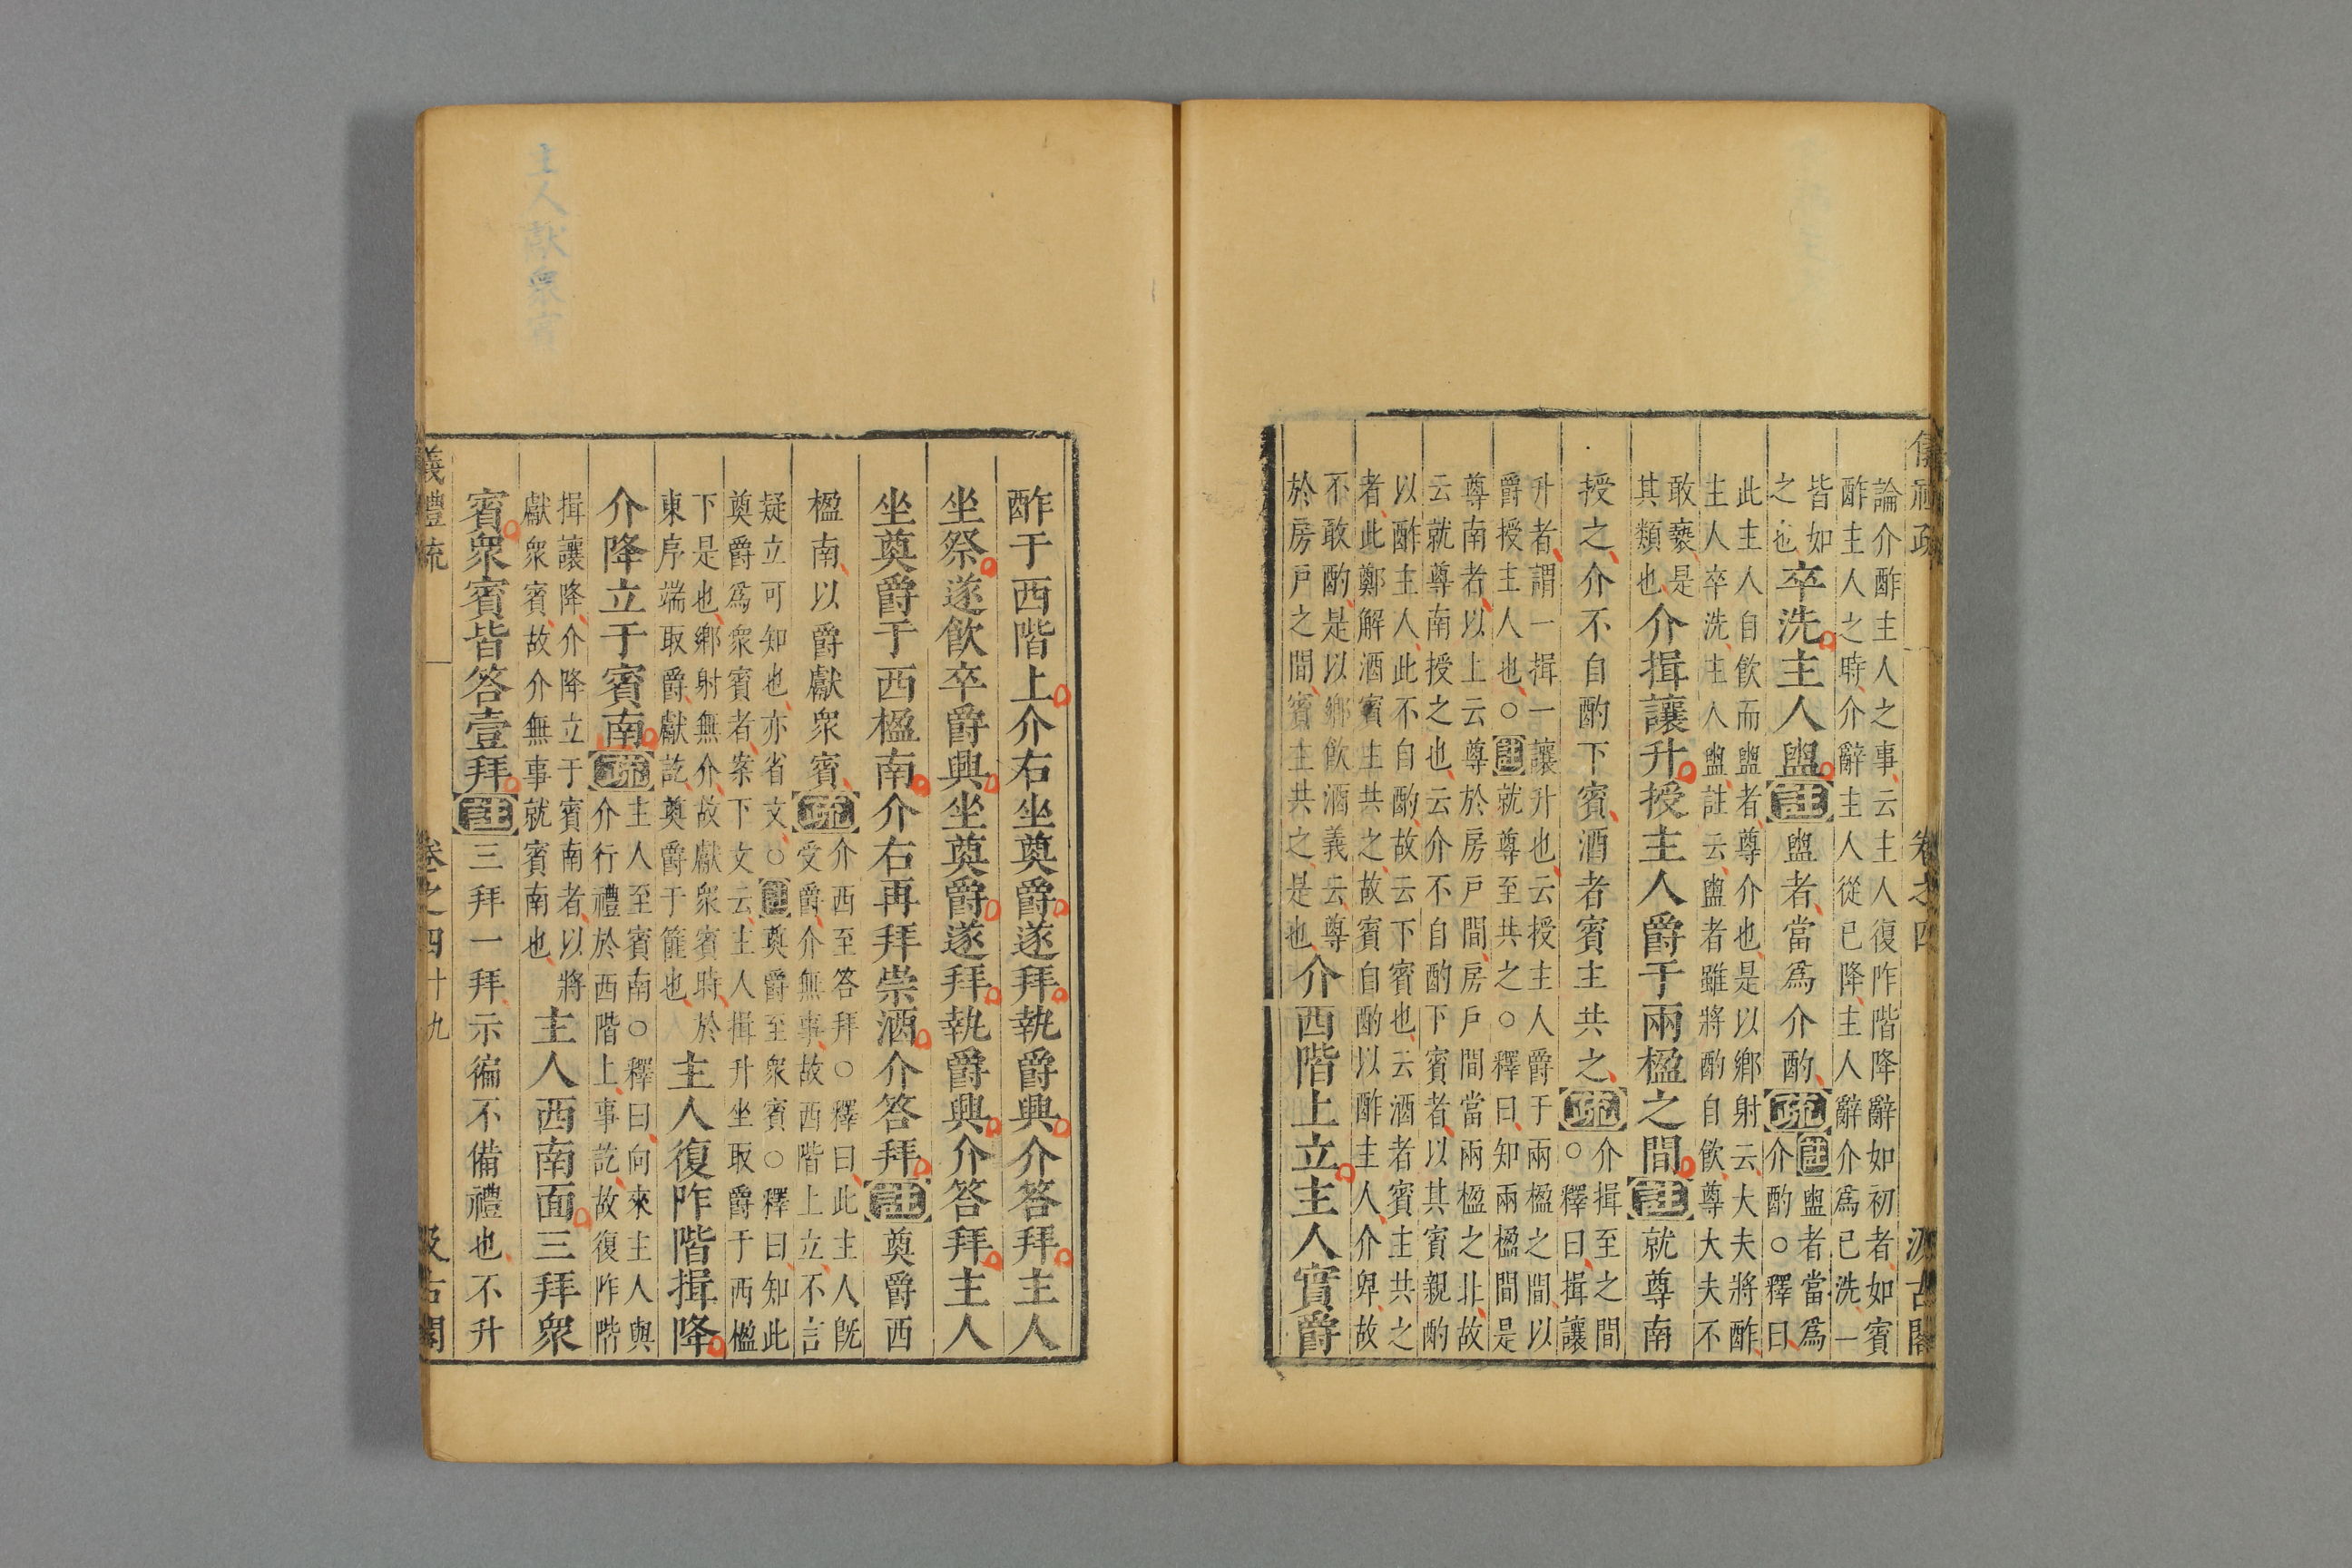 論介酢主人之事云主人復阼階降辭如初者如賓
酢主人之時介辭主人從已降主人辭介爲已洗一
皆如
之也卒洗主人盥註盥者當爲介酌疏註盥者當爲
介酌○釋曰
此主人自飲而盥者尊介也是以鄉射云大夫將酢
主人卒洗主人盥註云盥者雖將酌自飲尊大夫不
敢褻是
其類也介揖讓升授主人爵于兩楹之間註就尊南
授之介不自酌下賓酒者賓主共之疏介揖至之間
○釋曰揖讓
升者謂一揖一讓升也云授主人爵于兩楹之間以
爵授主人也○註就尊至共之○釋曰知兩楹間是
尊南者以上云尊於房戶間房戶間當兩楹之北故
云就尊南授之也云介不自酌下賓者以其賓親酌
以酢主人此不自酌故云下賓也云酒者賓主共之
者此鄭解酒賓主共之故賓自酌以酢主人介卑故
不敢酌是以鄉飲酒義云尊
於房戶之間賓主共之是也介西階上立主人實爵
酢于西階上介右坐奠爵遂拜執爵興介答拜主人
坐祭遂飲卒爵興坐奠爵遂拜執爵興介答拜主人
坐奠爵于西楹南介右再拜崇酒介答拜註奠爵西
楹南以爵獻衆賓疏介西至答拜○釋曰此主人旣
受爵介無事故西階上立不言
疑立可知也亦省文○註奠爵至衆賓○釋曰知此
奠爵爲衆賓者案下文云主人揖升坐取爵于西楹
下是也鄉射無介故獻衆賓時於
東序端取爵獻訖奠爵于篚也主人復阼階揖降
介降立于賓南疏主人至賓南○釋曰向來主人與
介行禮於西階上事訖故復阼階
揖讓降介降立于賓南者以將
獻衆賓故介無事就賓南也主人西南面三拜衆
賓衆賓皆答壹拜註三拜一拜示徧不備禮也不升
儀禮疏 卷之四十九 汲古閣
主人獻衆賓